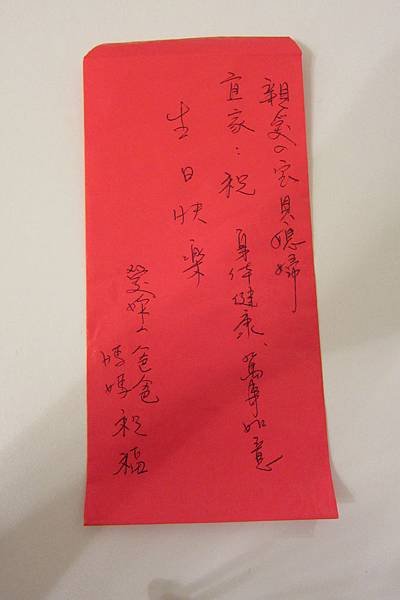 親愛的寶貝媳婦
宜家：祝 身体健康、萬事如意
生日快樂
愛妳的爸爸
媽媽 祝福